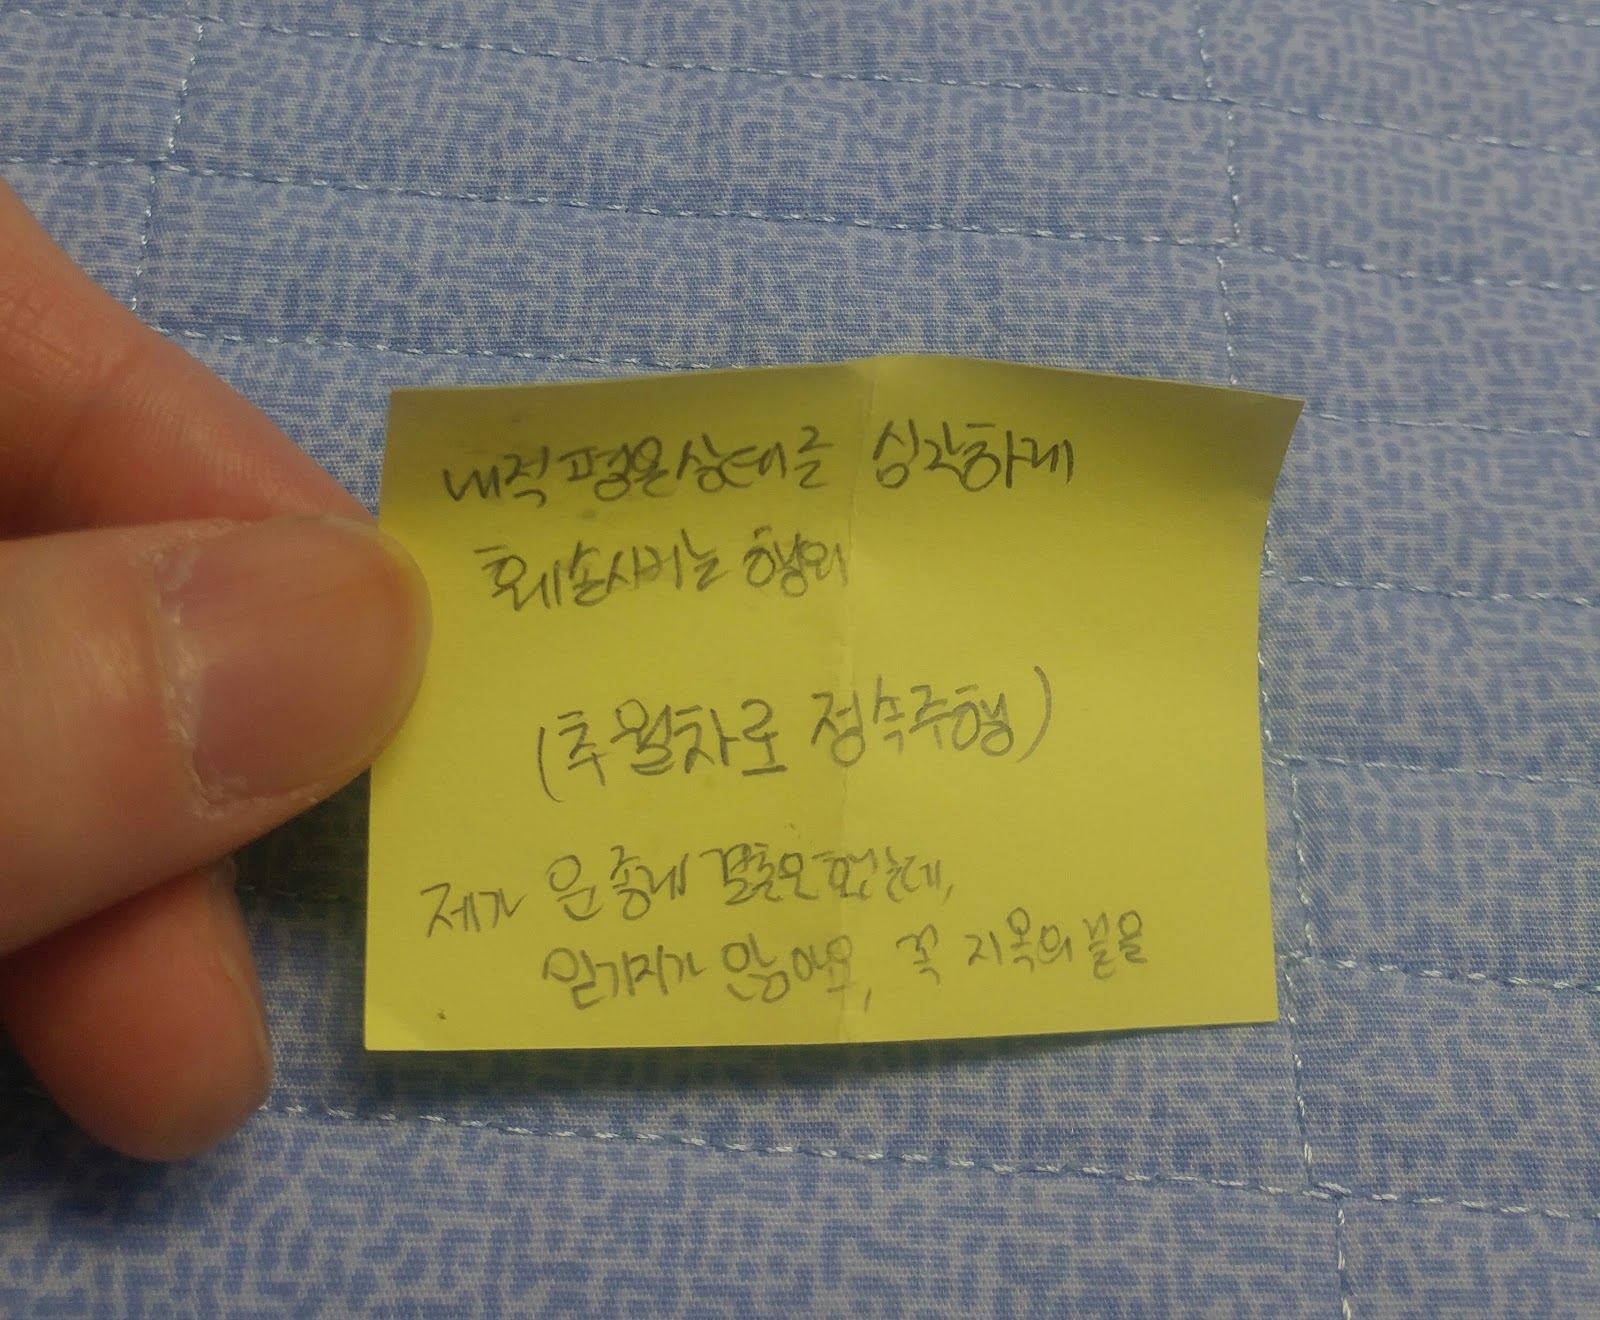 내적평온상태를 심각하게
훼손시키는 행위
(추월차로 정속주행)
제가 운 좋게 결혼은 했는데,
믿기지가 않아요, 꼭 지옥의 불을